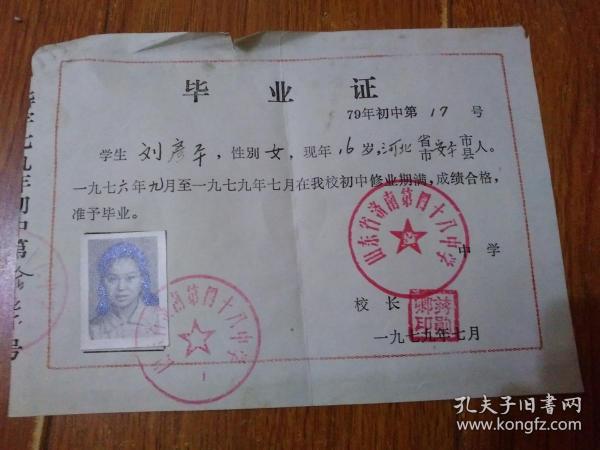 毕业证
79年初中第17号
学生刘彦平，性别女，现年16岁，河北省市安平市县人。
一九七六年九月至一九七九年七月在我校初中修业期满，成绩合格，
准予毕业。
山东省济南第四十八中学
中学
校长
一九七九年七月
济南第四十八中学
字七九年初中第拾号
孔夫子旧书网
www.kongfz.com